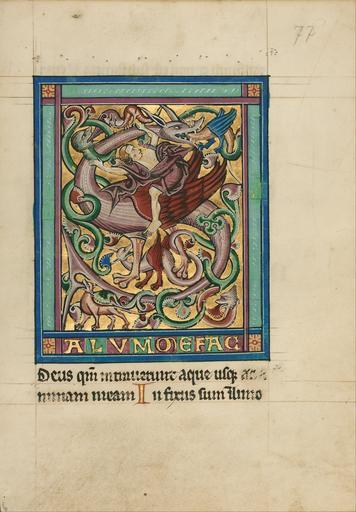 77
SALVUM ME FAC
Deus qm intraverunt aque usq; ad a
nimam meam In fixus sum in limo